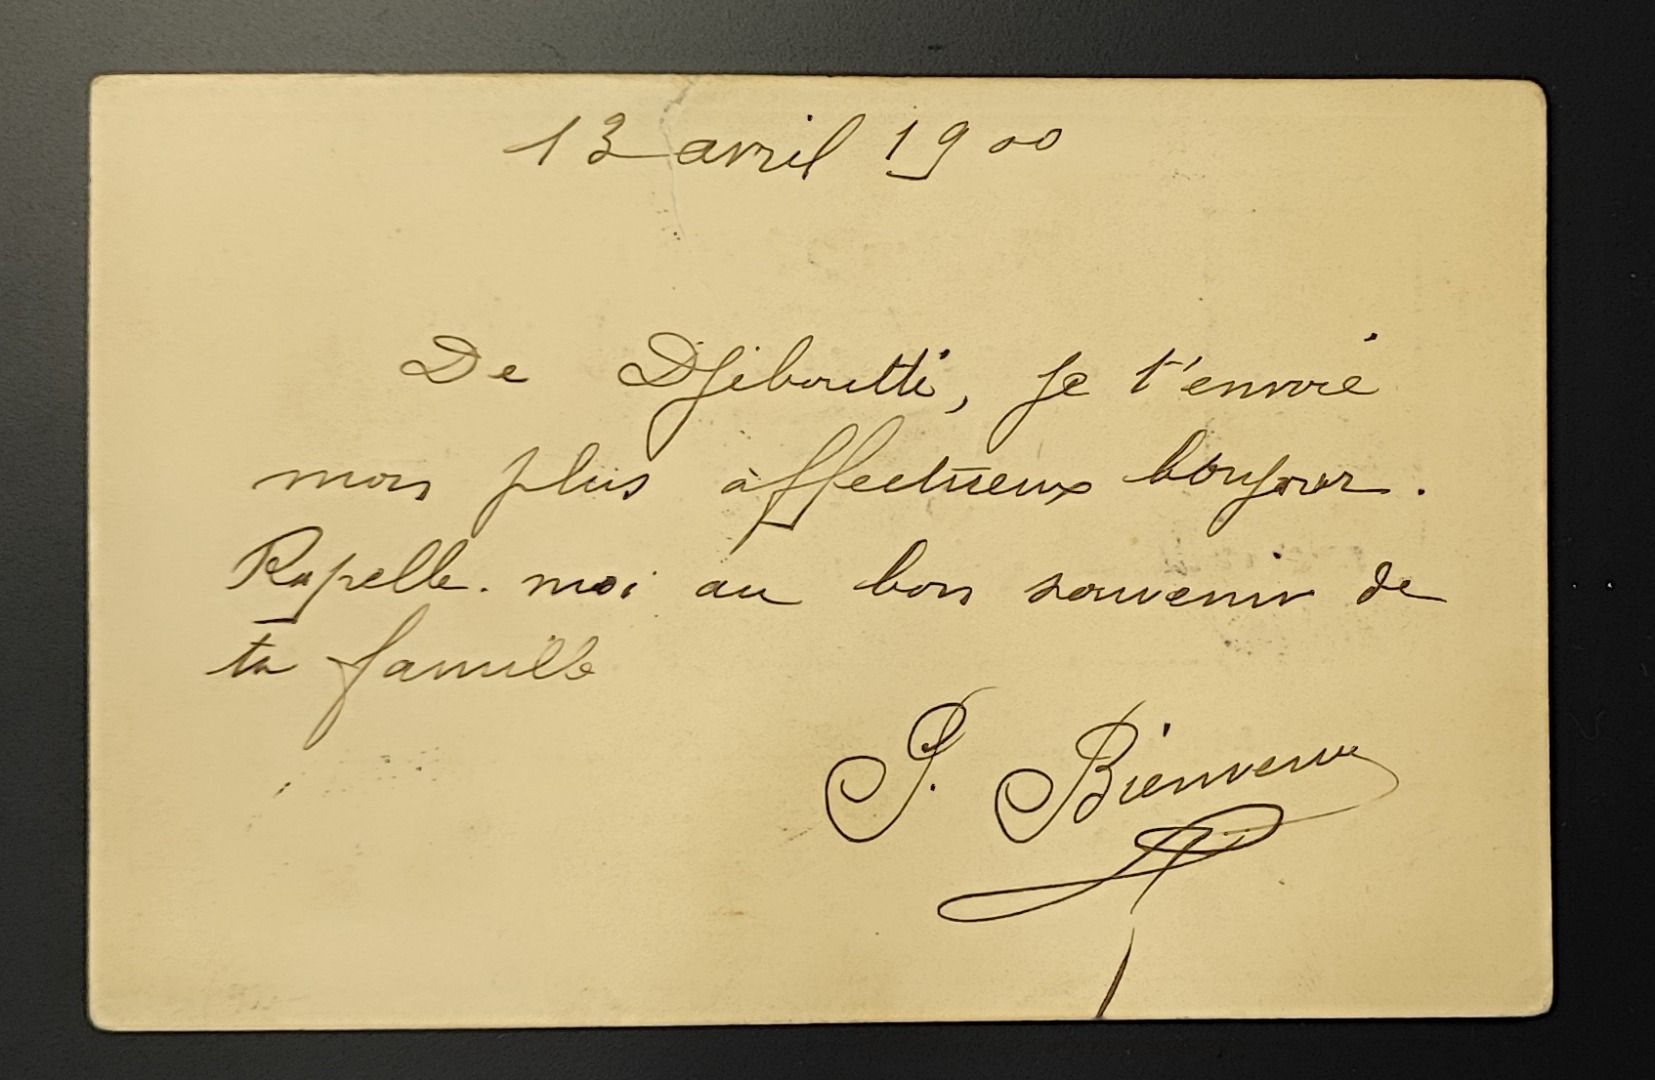 13 avril 1900
De Djiboutti, je t'envoie
mon plus affectueux bonjour.
Rapelle-moi au bon souvenir de
ta famille
P. Bienvenu